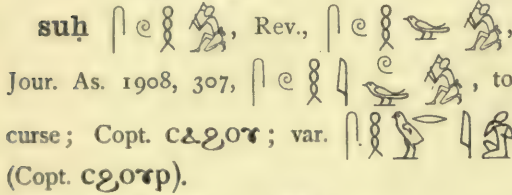 suḥ 𓋴𓏲𓎛, Rev., 𓋴𓏲𓎛𓅪,
Jour. As. 1908, 307, 𓋴𓏲𓎛𓇋𓏲𓅪, to
curse; Copt. ⲥⲁϩⲟⲩ; var. 𓋴𓎛𓂋𓇋𓀁
(Copt. ⲥϩⲟⲩⲣ).